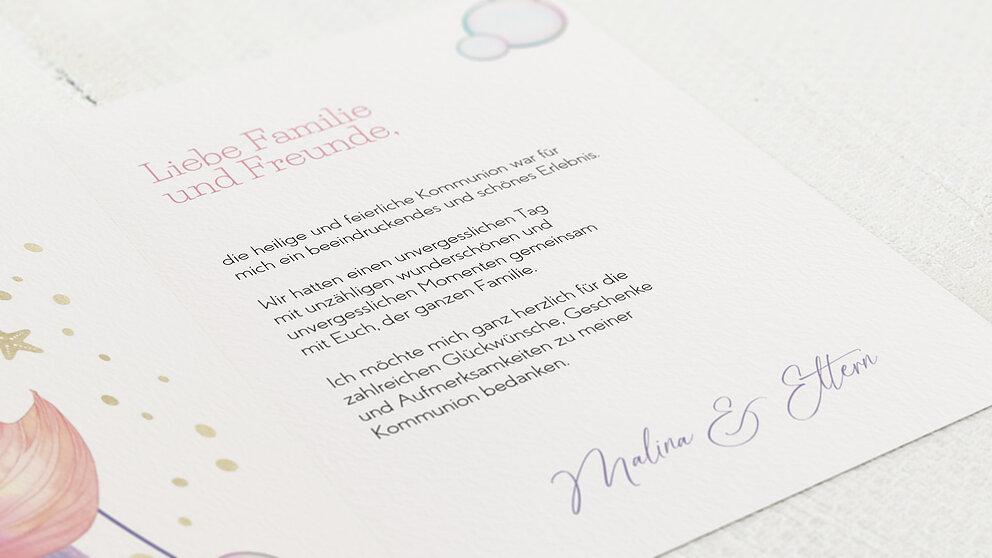 Liebe Familie
und Freunde,
die heilige und feierliche Kommunion war für
mich ein beeindruckendes und schönes Erlebnis.
Wir hatten einen unvergesslichen Tag
mit unzähligen wunderschönen und
unvergesslichen Momenten gemeinsam
mit Euch, der ganzen Familie.
Ich möchte mich ganz herzlich für die
zahlreichen Glückwünsche, Geschenke
und Aufmerksamkeiten zu meiner
Kommunion bedanken.
Malina & Eltern